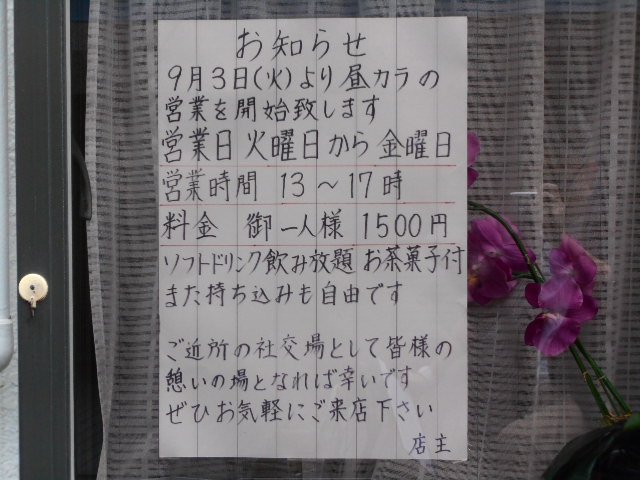 お知らせ
9月3日(火)より昼カラの
営業を開始致します
営業日 火曜日から金曜日
営業時間 13～17時
料金 御一人様 1500円
ソフトドリンク飲み放題 お茶菓子付
また持ち込みも自由です
ご近所の社交場として皆様の
憩いの場となれば幸いです
ぜひお気軽にご来店下さい
店主